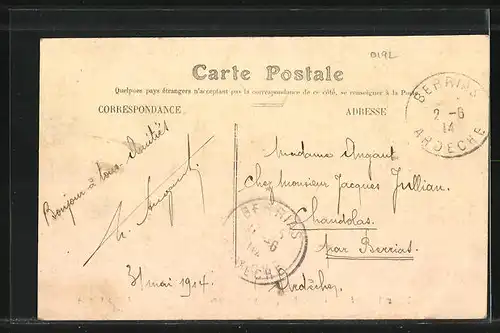 0192
Carte Postale
Quelques pays étrangers n'acceptant pas la correspondance de ce côté, se renseigner à la Poste
CORRESPONDANCE
ADRESSE
BERRIAS
2 - 6
14
ARDECHE
Bonjour à tous Amitiés
31 mai 1914
Madame
Chez Monsieur Jacques Jullian
Chandolas
par Berrias
Ardèche
BERRIAS
-6
14
ARDECHE